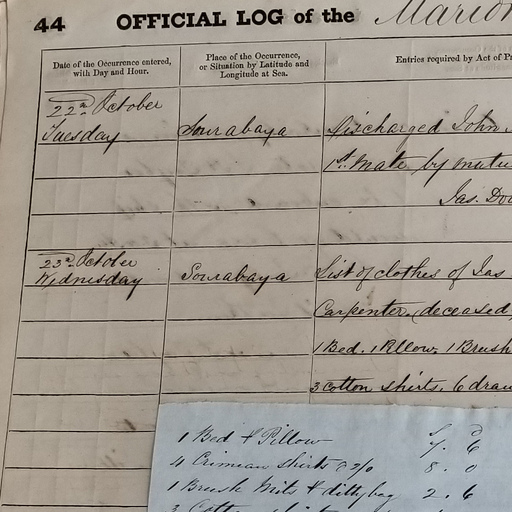 44 OFFICIAL LOG of the Marion
Date of the Occurrence entered, with Day and Hour.
Place of the Occurrence, or Situation by Latitude and Longitude at Sea.
Entries required by Act of
22nd October
Tuesday
Sourabaya
Discharged John
1st Mate by mutu
Jas.
23rd October
Wednesday
Sourabaya
List of clothes of Jas
Carpenter, deceased,
1 Bed, 1 Pillow, 1 Brush
3 Cotton shirts, 6 draw
1 Bed & Pillow 7. 6
4 Crimean shirts @ 2/0 8. 0
1 Brush Mits & dittybag 2. 6
3